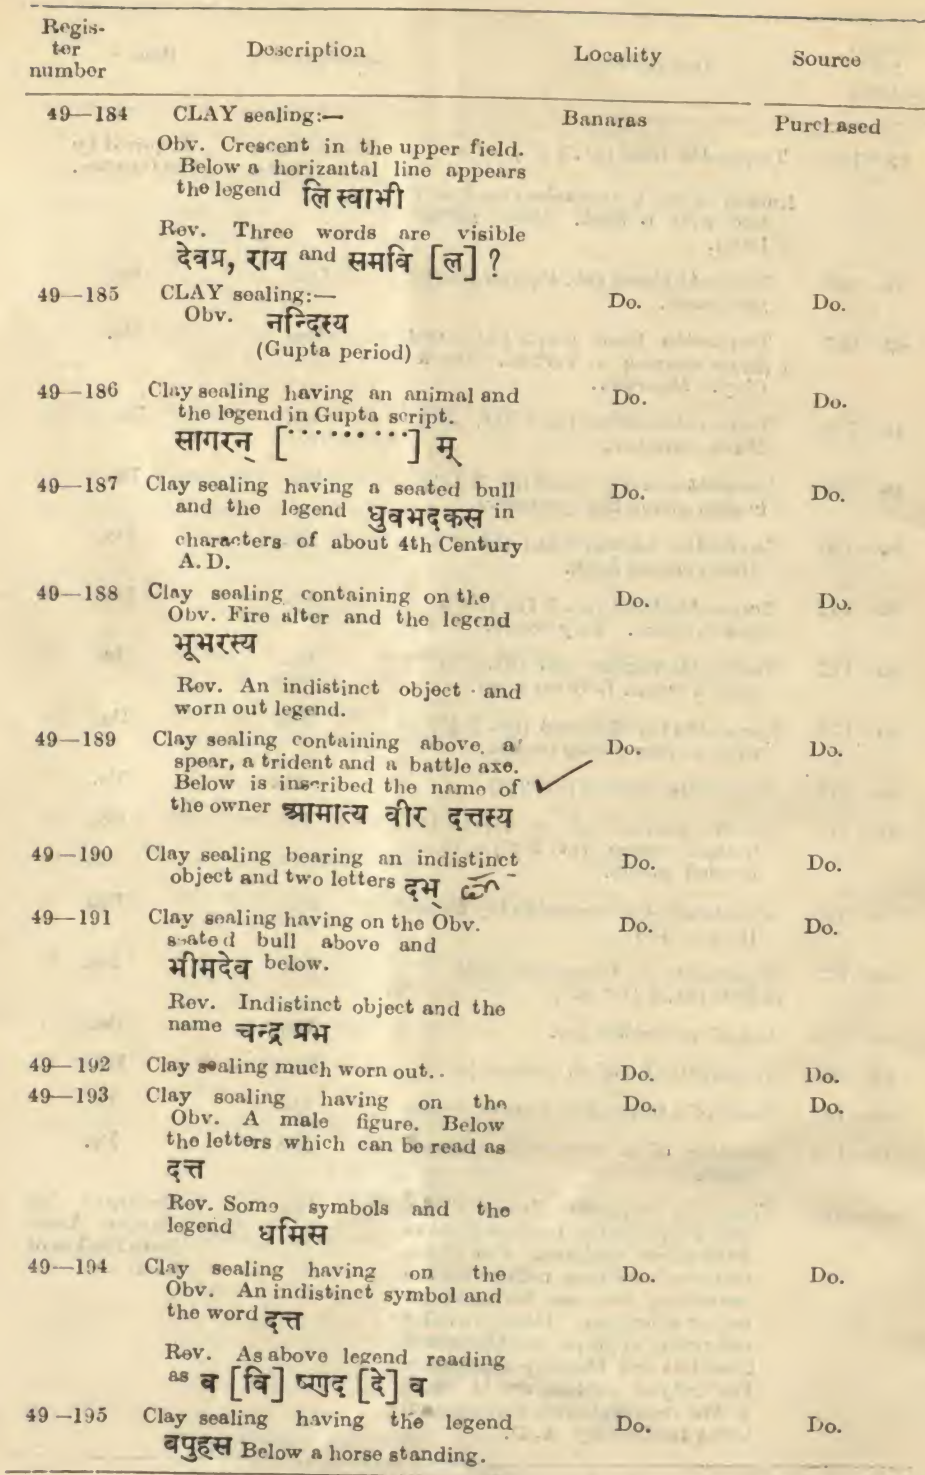 Regis-
ter
number Description Locality Source
49—184 CLAY sealing:— Banaras Purchased
Obv. Crescent in the upper field.
Below a horizantal line appears
the legend लि स्वाभी
Rev. Three words are visible
देवप्र, राय and समवि [ल] ?
49—185 CLAY sealing:— Do. Do.
Obv. नन्दिस्य
(Gupta period)
49—186 Clay sealing having an animal and Do. Do.
the legend in Gupta script.
सागरन् [·········] मू
49—187 Clay sealing having a seated bull Do. Do.
and the legend धुवभदकस in
characters of about 4th Century
A. D.
49—188 Clay sealing containing on the Do. Do.
Obv. Fire alter and the legend
भूभरस्य
Rev. An indistinct object and
worn out legend.
49—189 Clay sealing containing above, a Do. Do.
spear, a trident and a battle axe.
Below is inscribed the name of
the owner आमात्य वीर दत्तस्य
49—190 Clay sealing bearing an indistinct Do. Do.
object and two letters दभ्
49—191 Clay sealing having on the Obv. Do. Do.
seated bull above and
भीमदेव below.
Rev. Indistinct object and the
name चन्द्र प्रभ
49—192 Clay sealing much worn out.. Do. Do.
49—193 Clay sealing having on the Do. Do.
Obv. A male figure. Below
the letters which can be read as
दत्त
Rev. Some symbols and the
legend धमिस
49—194 Clay sealing having on the Do. Do.
Obv. An indistinct symbol and
the word दत्त
Rev. As above legend reading
as व [वि] ष्णद [दे] व
49—195 Clay sealing having the legend Do. Do.
वपुहस Below a horse standing.